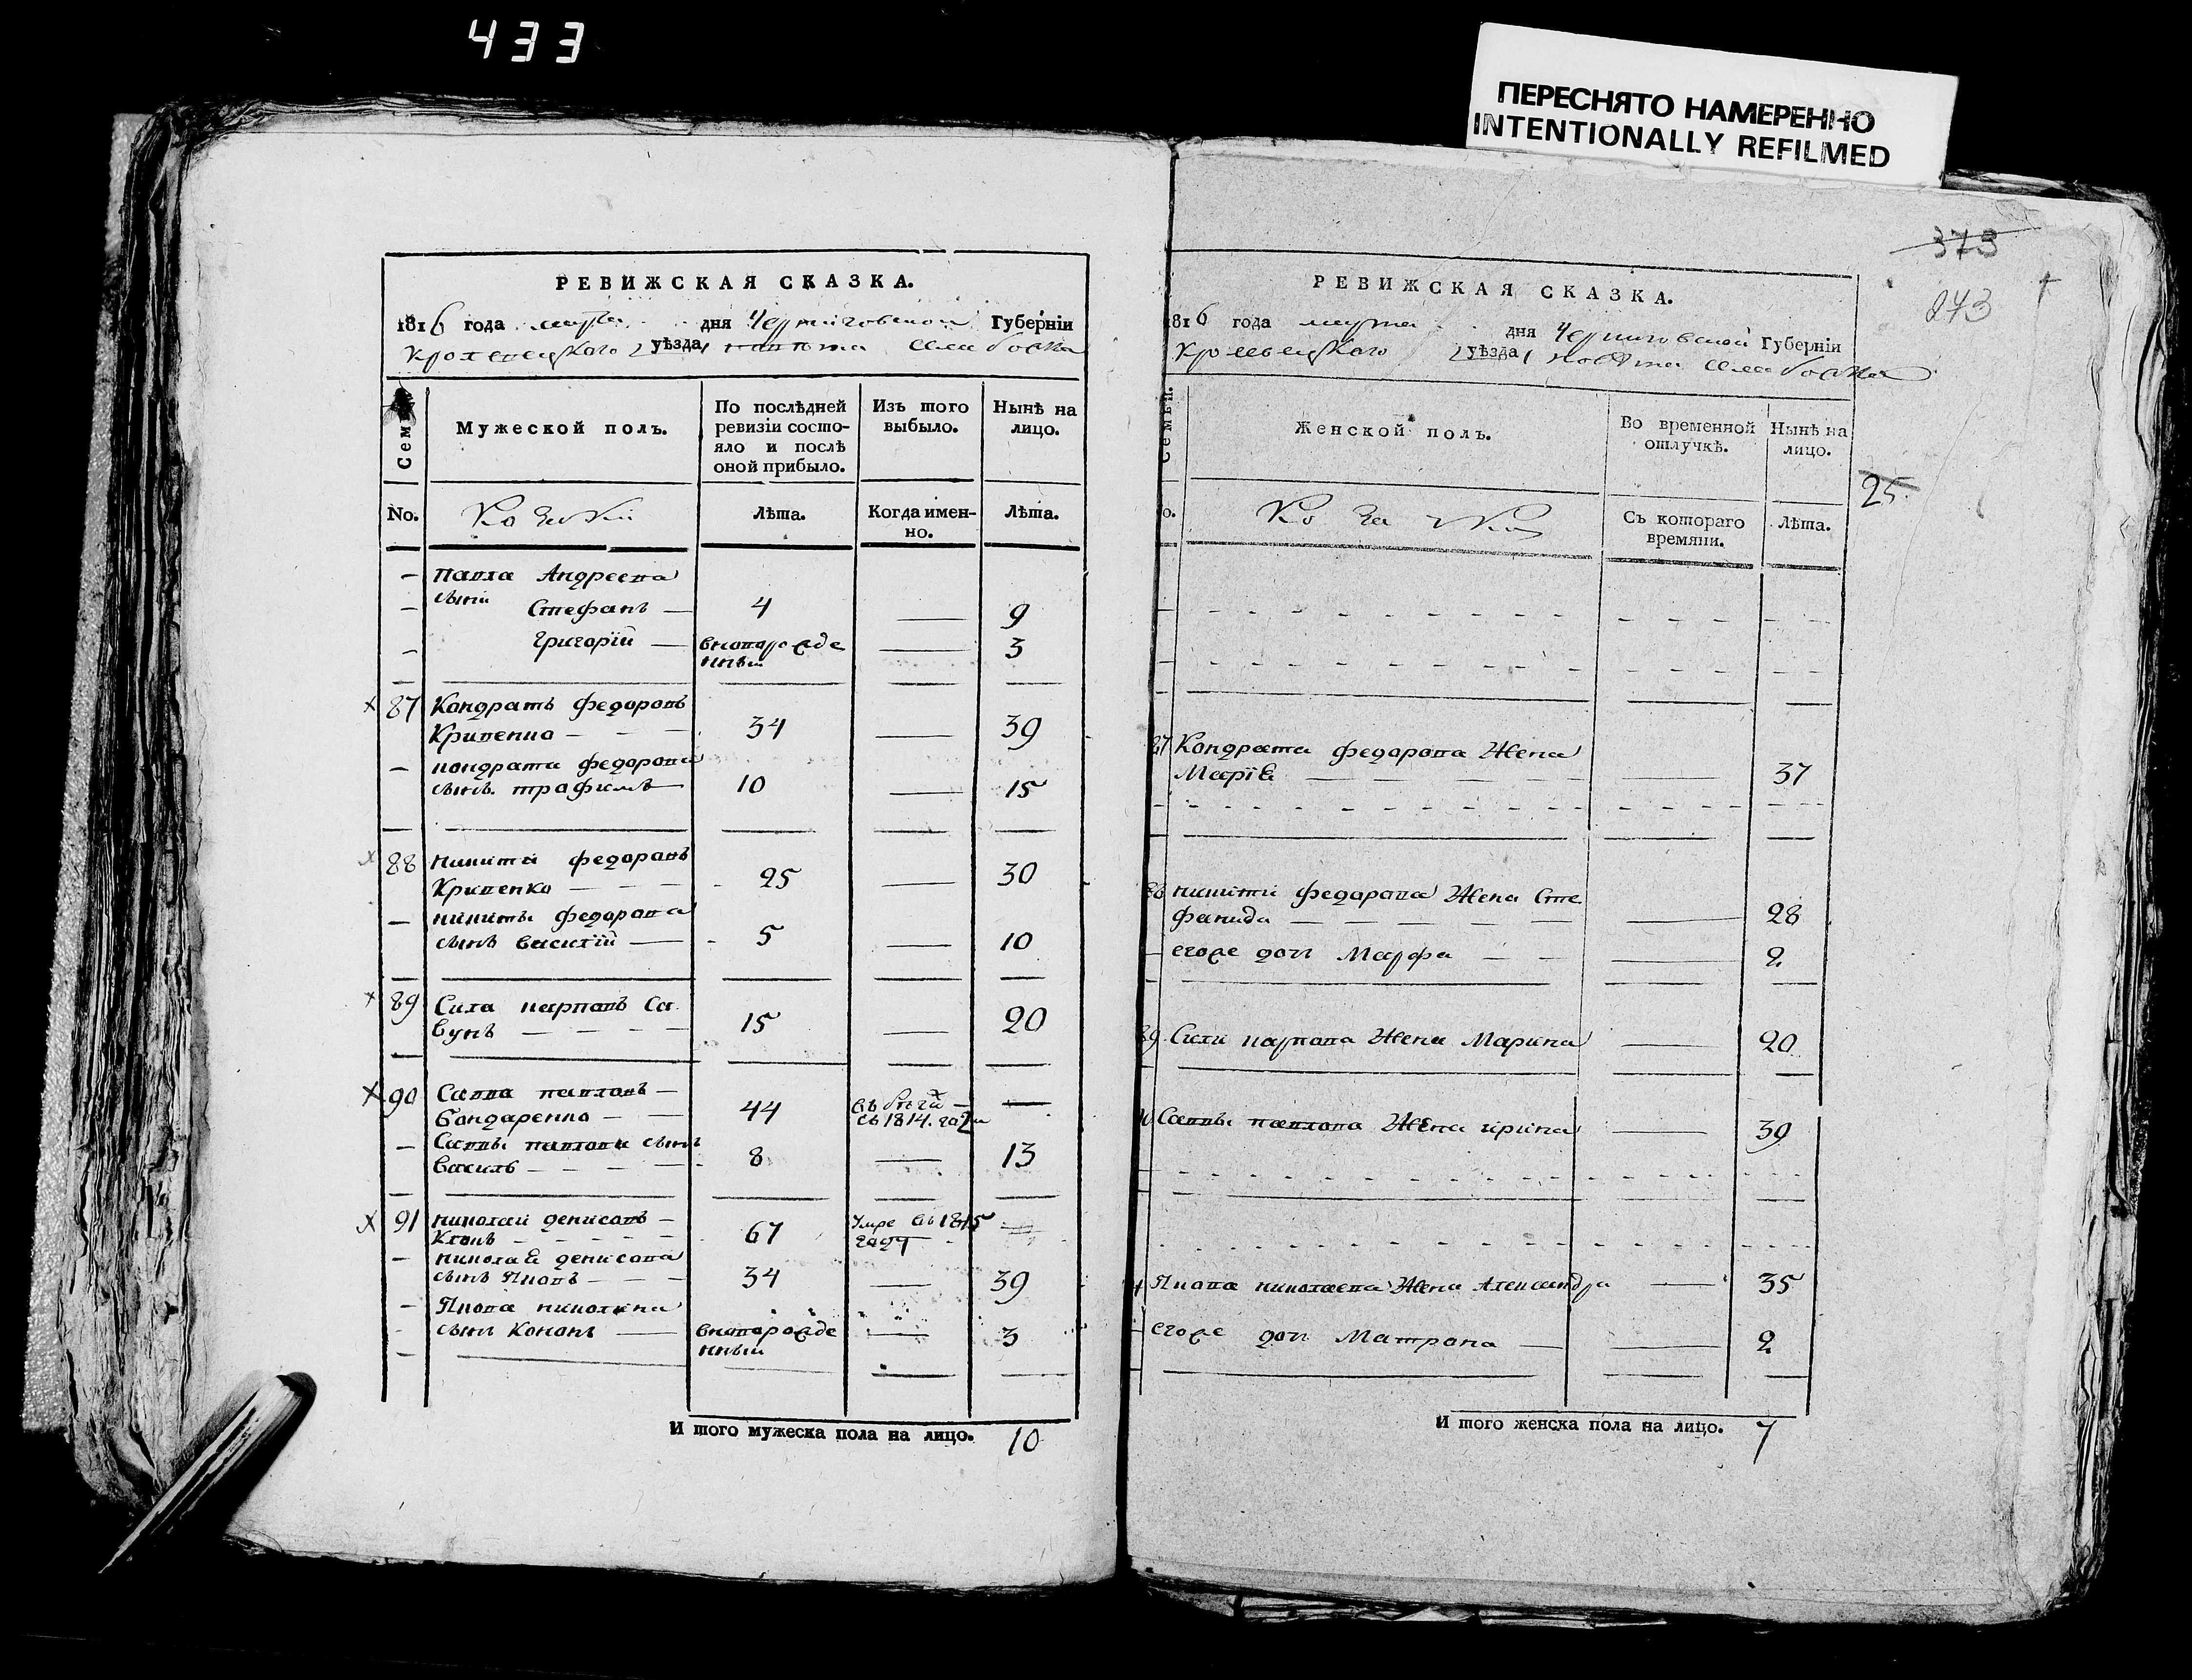 433
ПЕРЕСНЯТО НАМЕРЕННО
INTENTIONALLY REFILMED
РЕВИЖСКАЯ СКАЗКА.
1816 года марта дня Черниговской Губернїи
Кролевецкого уѣзда повѣта села
Семьи.
Мужеской полъ.
По послѣдней ревизїи состо-
яло и послѣ
оной прибыло.
Изъ того
выбыло.
Нынѣ на
лицо.
No.
Козаки
Лѣта.
Когда имен-
но.
Лѣта.
Павла Андреева
сыни Стефанъ 4 9
Григорїй новорожде 3
нный
87 Кондратъ Федоровъ
Кривенко 34 39
Кондрата Федорова
сынъ Трафимъ 10 15
88 Никита Федоровъ
Кривенко 25 30
Никиты Федорова
сынъ Василїй 5 10
89 Сила Карповъ Са
вунъ 15 20
90 Савва Павловъ
Бондаренко 44
съ 1814. года
Саввы Павлова сынъ
Василь 8 13
91 Николай Денисовъ
67 Умре въ 1815
году
Николая Денисова
сынъ Яковъ 34 39
Якова Николаева
сынъ Кононъ новорожде 3
нный
И того мужеска пола на лицо. 10
373
243
РЕВИЖСКАЯ СКАЗКА.
1816 года марта дня Черниговской Губернїи
Кролевецкого уѣзда повѣта села
Семьи.
Женской полъ.
Во временной
отлучкѣ.
Нынѣ на
лицо.
25.
Козачки
Съ котораго
времяни.
Лѣта.
87 Кондрата Федорова Жена
Марїя 37
88 Никиты Федорова Жена Сте
фанида 28
егоже доч Марфа 2
89 Силы Карпова Жена Марина 20
90 Саввы Павлова Жена Ирина 39
Якова Николаева Жена Александра 35
егоже доч Матрона 2
И того женска пола на лицо. 7